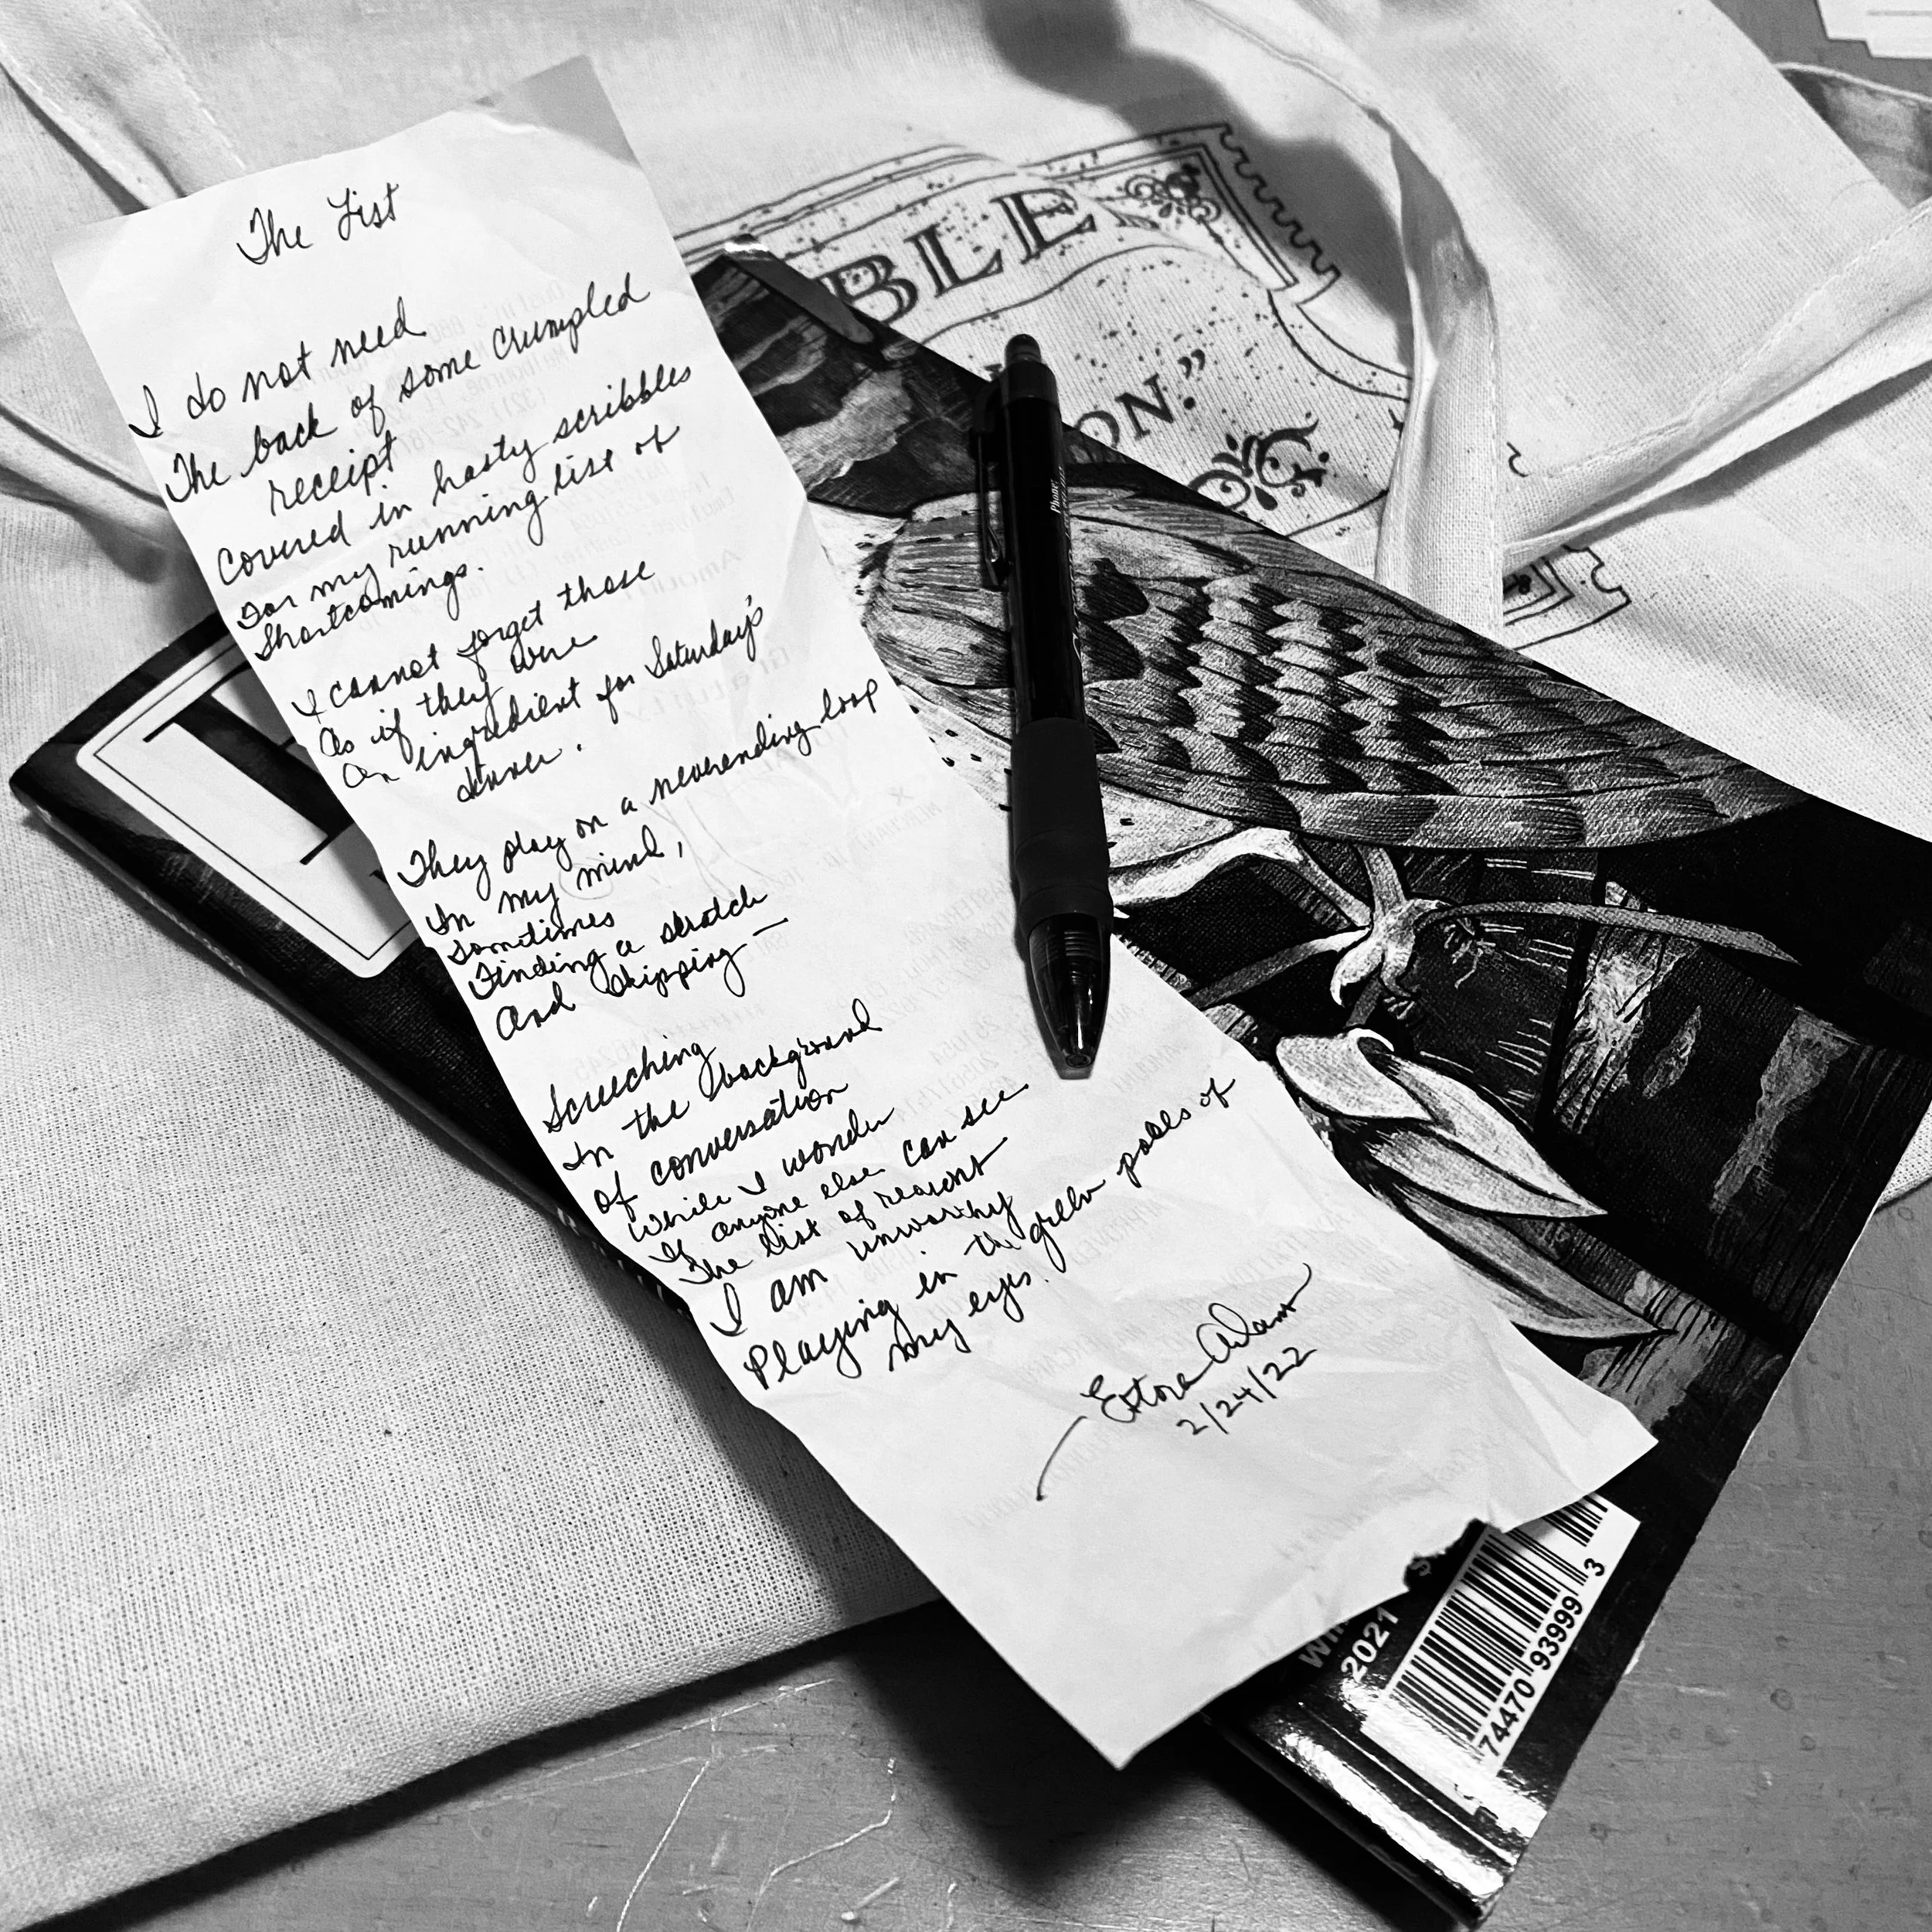 The List
I do not need
The back of some crumpled
receipt
Covered in hasty scribbles
For my running list of
Shortcomings.
I cannot forget those
As if they were
An ingredient for Saturday's
dinner.
They play on a neverending loop
In my mind,
Sometimes
Finding a scratch
And skipping —
Screeching
In the background
Of conversation
While I wonder
If anyone else can see
The list of reasons
I am unworthy
Playing in the green pools of
my eyes.
2/24/22
BLE
ON."
2021
74470 93999 3